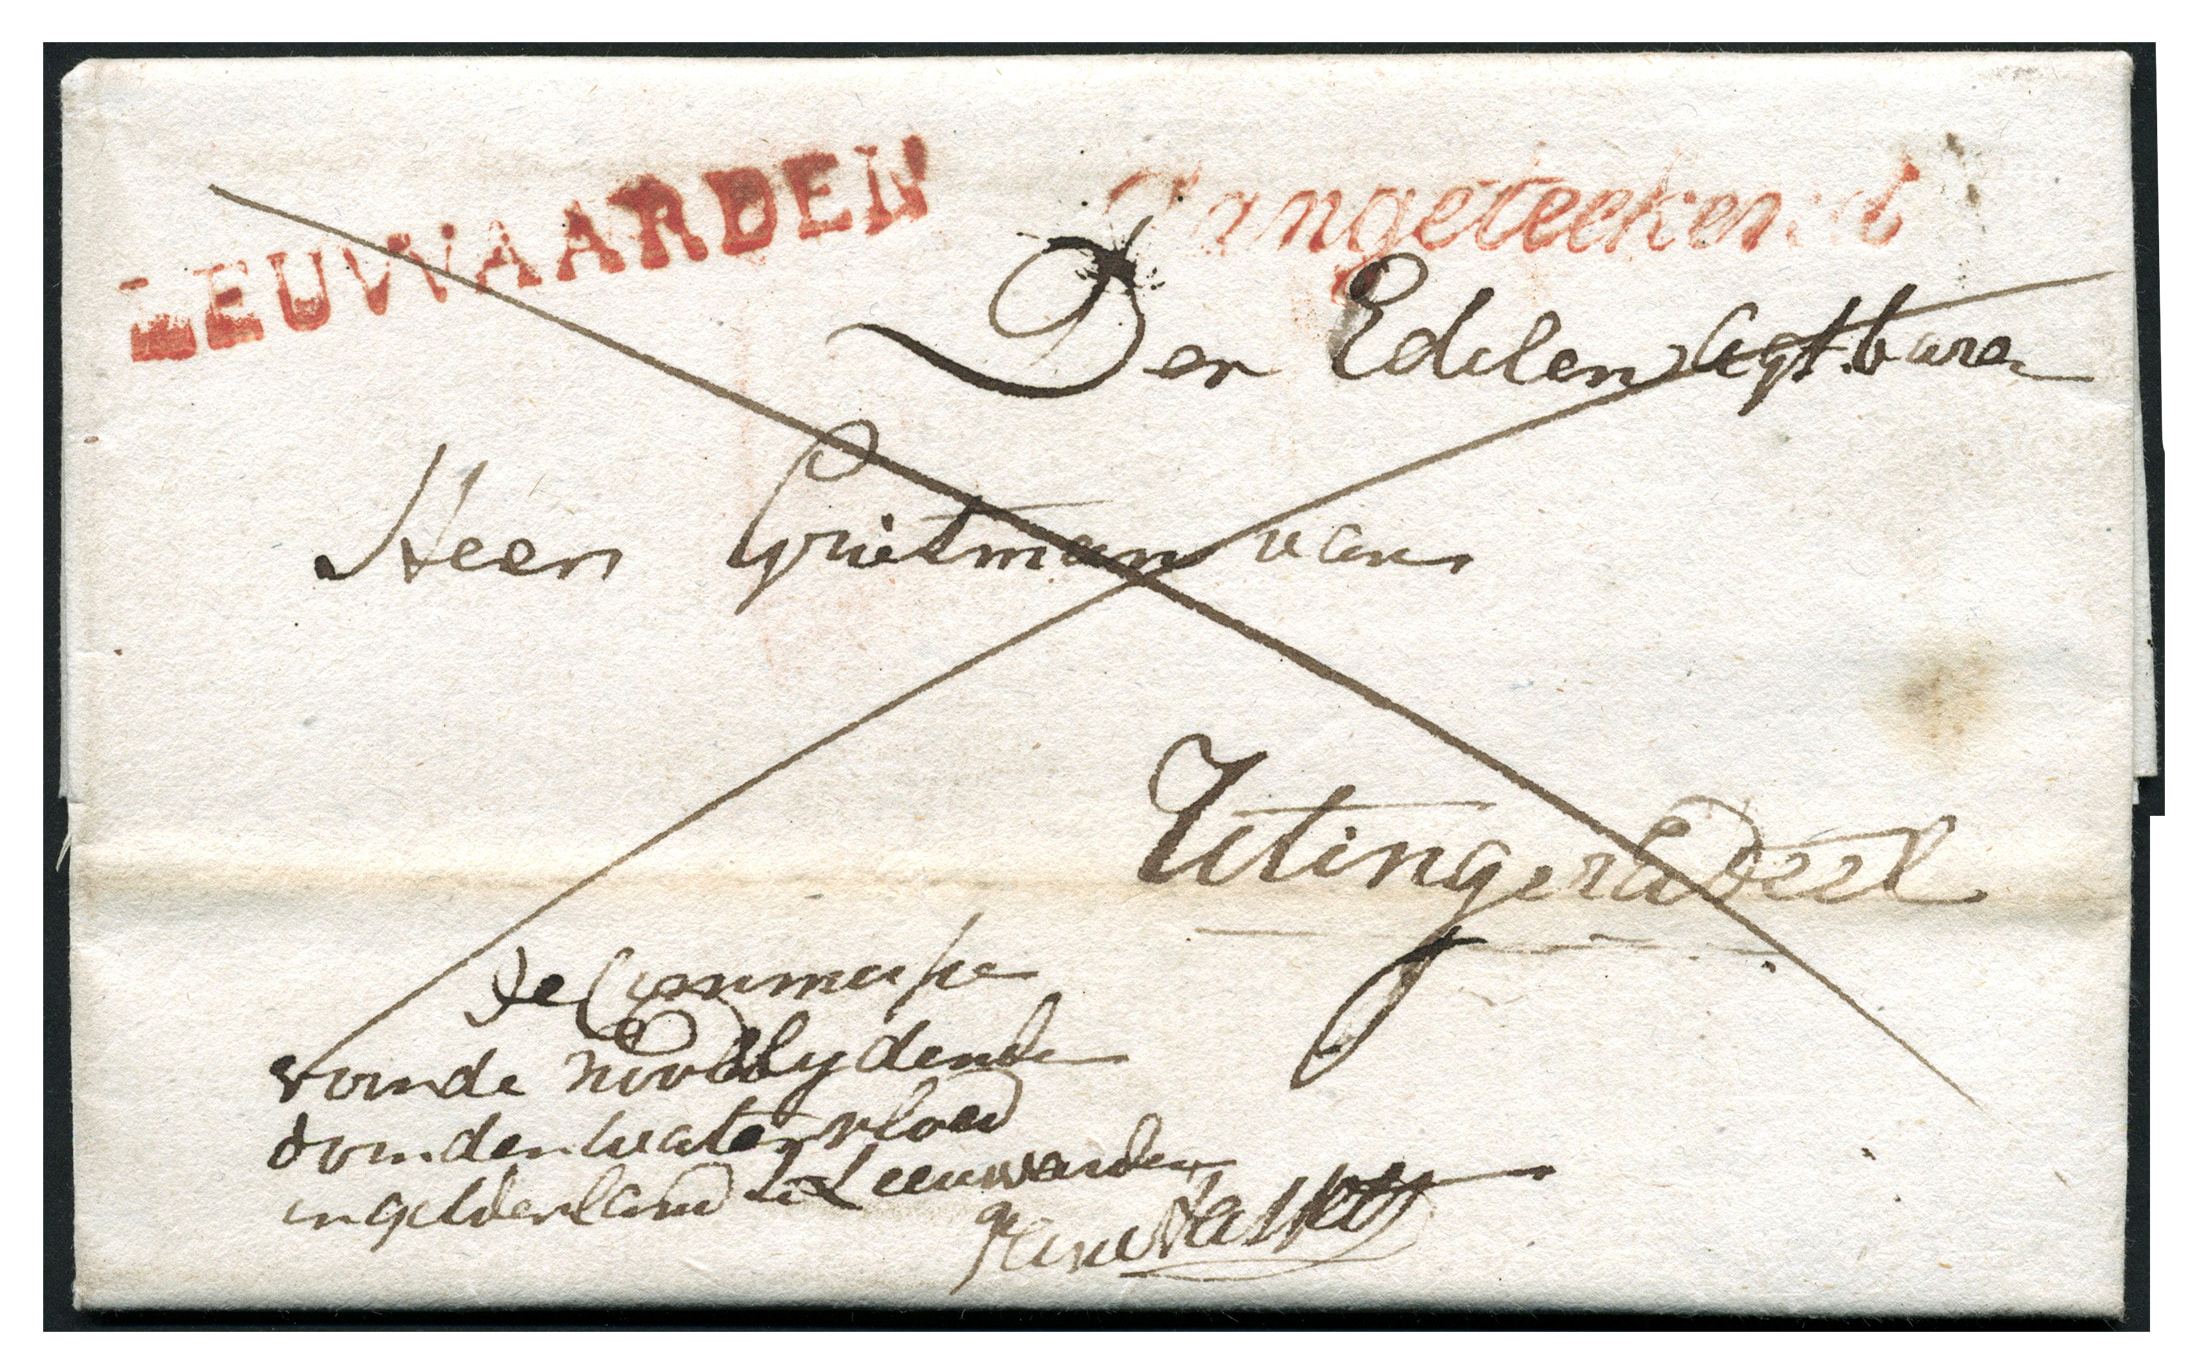 LEUWAARDEN
Aangeteekend
Den Edelen Agtbaren
Heer Grietman van
Utingeradeel
de Commissie
voor de Noodlydende
door den watervloed
in gelderland te Leeuwarden